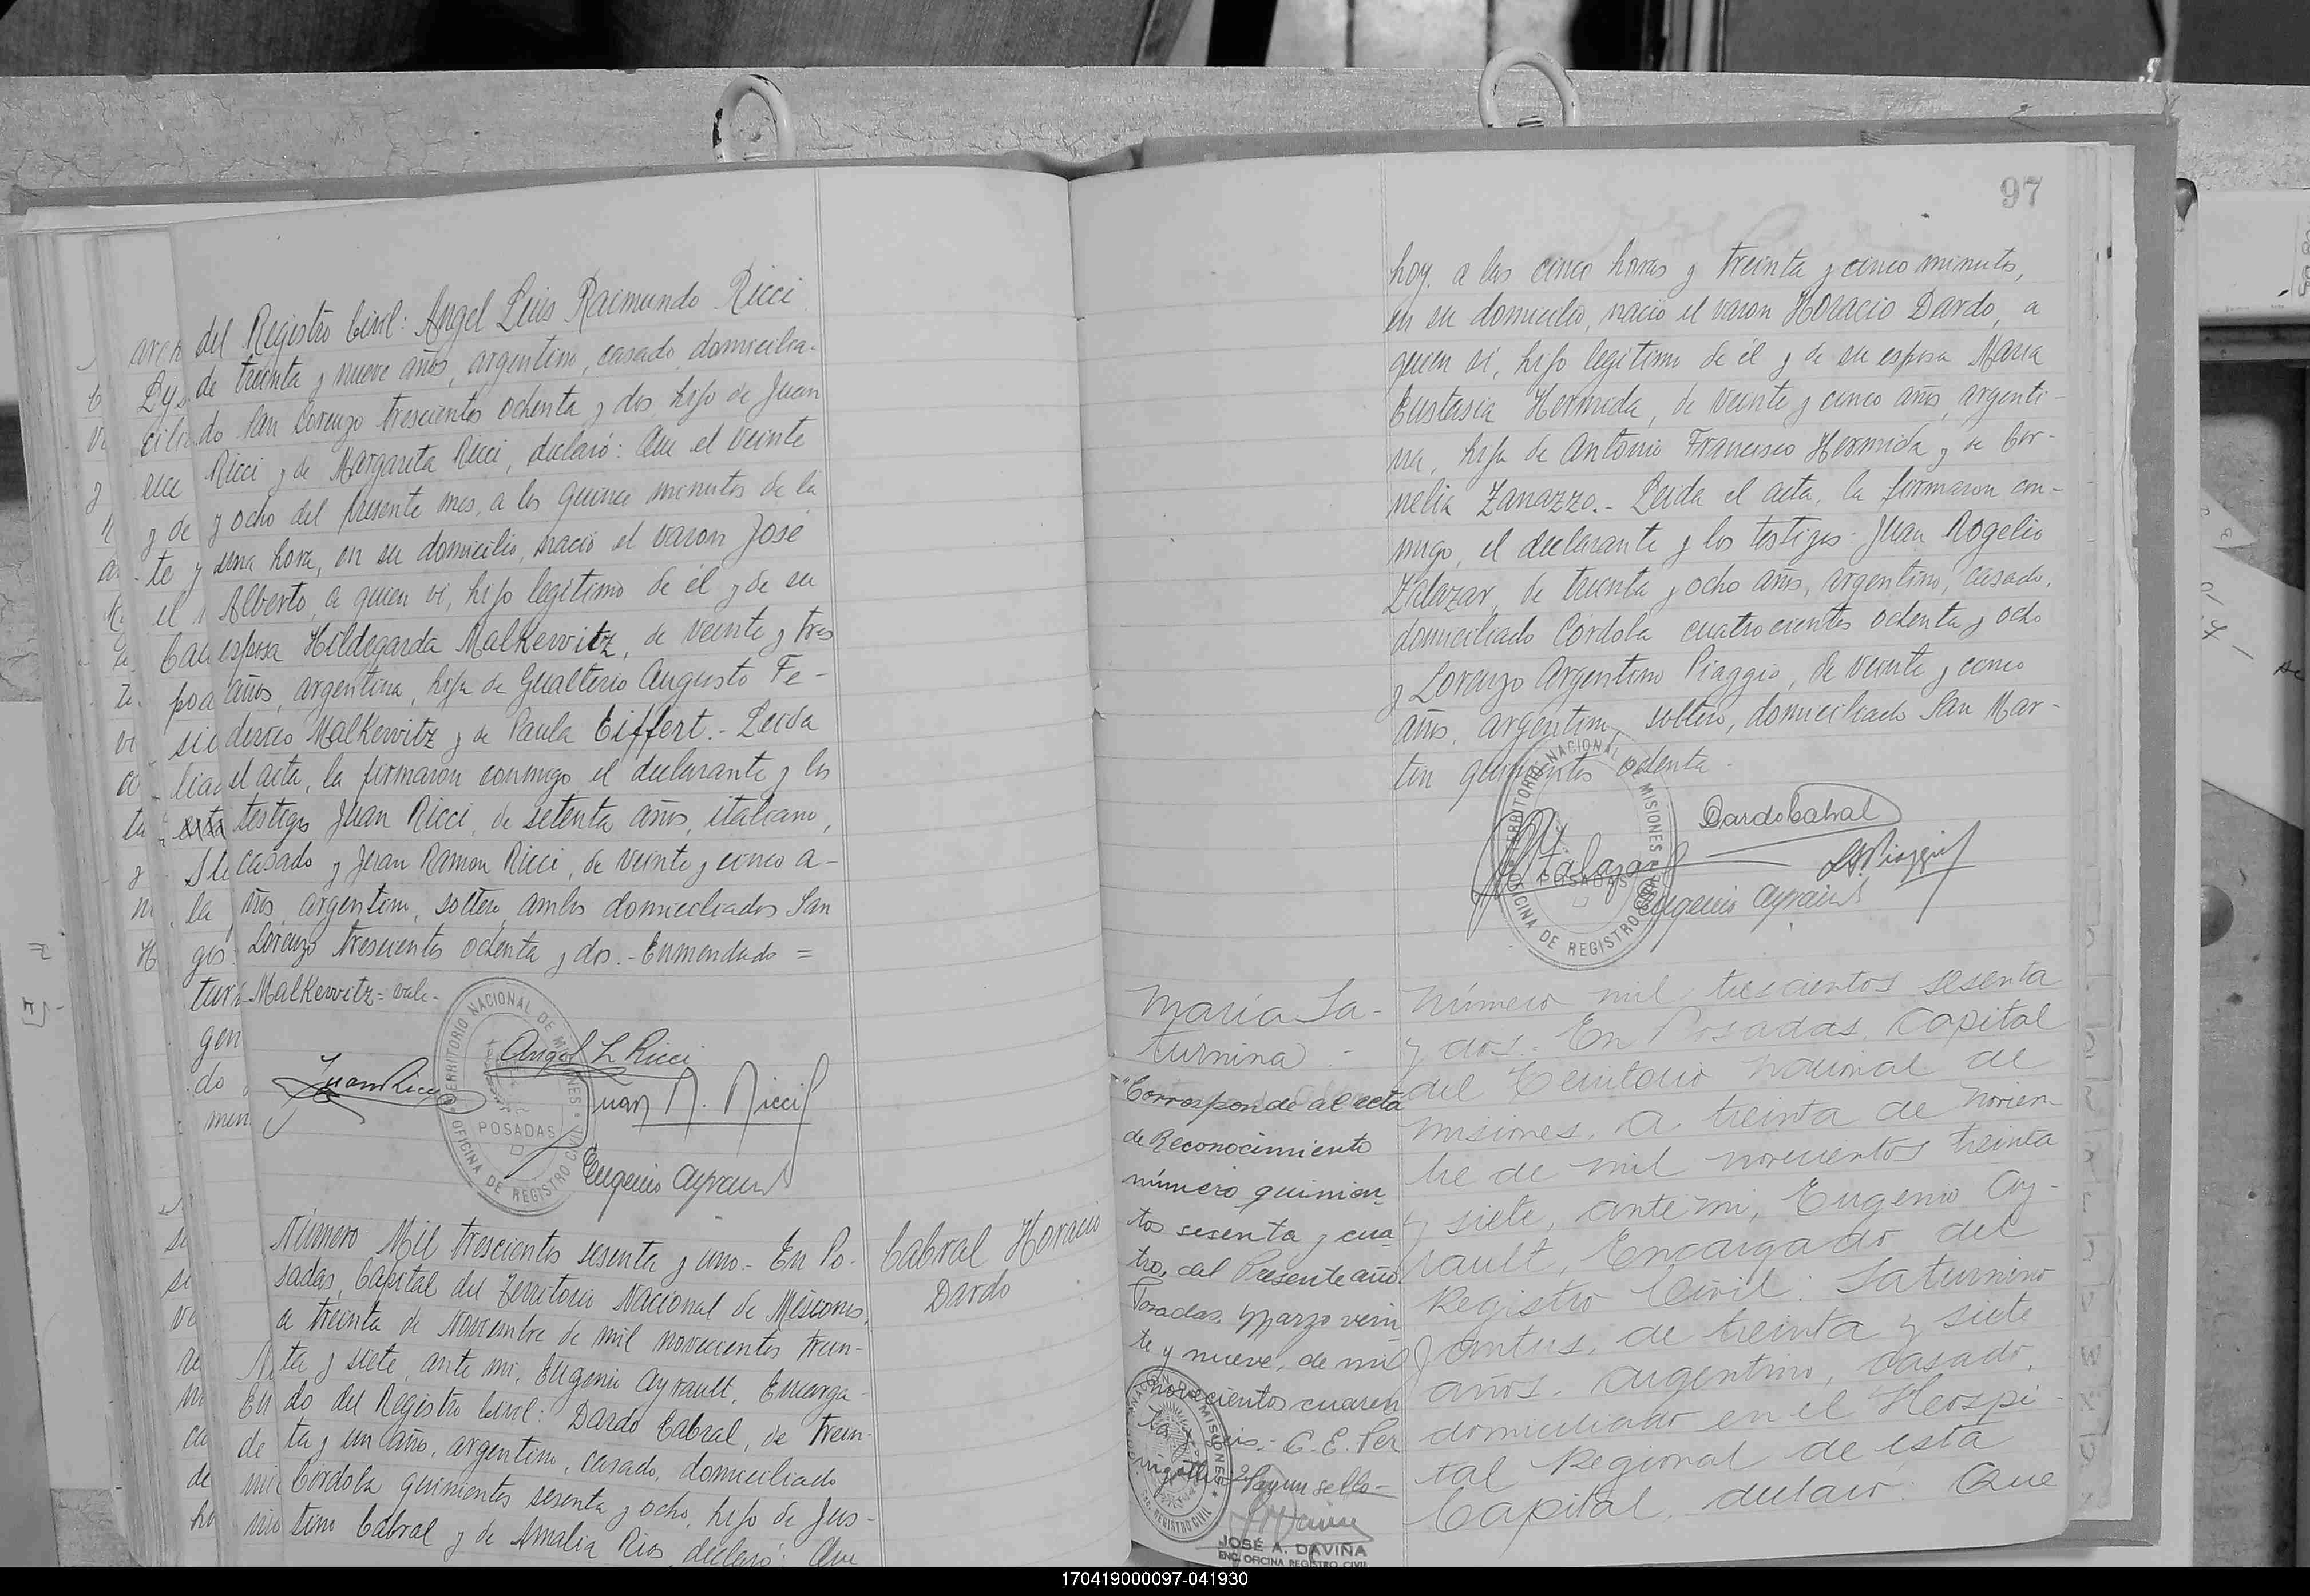 del Registro Civil: Angel Luis Raimundo Ricci
de treinta y nueve años, argentino, casado, domicilia-
do San Lorenzo trescientos ochenta y dos, hijo de Juan
Ricci y de Margarita Ricci, declaró: Que el veinte
y ocho del presente mes, a los quince minutos de la
una hora, en su domicilio, nació el varon José
Alberto, a quien ví, hijo legítimo de él y de su
esposa Hildegarda Malkewitz, de veinte y tres
años, argentina, hija de Gualterio Augusto Fe-
derico Malkewitz y de Paula Eiffert.- Leida
el acta, la firmaron conmigo, el declarante y los
testigos Juan Ricci, de setenta años, italiano,
casado y Juan Ramon Ricci, de veinte y cinco a-
ños, argentino, soltero, ambos domiciliados San
Lorenzo trescientos ochenta y dos.- Enmendado =
Malkewitz = vale.-
TERRITORIO NACIONAL DE MISIONES
POSADAS
OFICINA DE REGISTRO CIVIL
Angel L Ricci
Juan Ricci
Juan R. Ricci
Eugenio Ayrault
Número Mil trescientos sesenta y uno.- En Po-
sadas, Capital del Territorio Nacional de Misiones,
a treinta de Noviembre de mil novecientos trein-
ta y siete, ante mi, Eugenio Ayrault, Encarga-
do del Registro Civil: Dardo Cabral, de trein-
ta y un año, argentino, casado, domiciliado
Córdoba quinientos sesenta y ocho, hijo de Jus-
tino Cabral y de Amalia Rios, declaró: Que
Cabral Horacio
Dardo
97
hoy, a las cinco horas y treinta y cinco minutos,
en su domicilio, nació el varon Horacio Dardo, a
quien ví, hijo legítimo de él y de su esposa Maria
Eustasia Hermida, de veinte y cinco años, argenti-
na, hija de Antonio Francisco Hermida y de Cor-
nelia Zanazzo.- Leida el acta, la firmaron con-
migo, el declarante y los testigos: Juan Rogelio
Zalazar, de treinta y ocho años, argentino, casado,
domiciliado Córdoba cuatrocientos ochenta y ocho
y Lorenzo Argentino Piaggio, de veinte y cinco
años, argentino, soltero, domiciliado San Mar-
tin quinientos ochenta.-
TERRITORIO NACIONAL DE MISIONES
POSADAS
OFICINA DE REGISTRO CIVIL
Dardo Cabral
Zalazar
Piaggio
Eugenio Ayrault
Maria Sa-
turnina -
"Corresponde al acta
de Reconocimiento
número quinien
tos sesenta y cua
tro, del Presente año.
Posadas, Marzo vein
te y nueve, de mil
novecientos cuaren
ta y seis.- C. E. Per
Hay un sello =
JOSÉ A. DAVIÑA
ENC. OFICINA REGISTRO CIVIL
Número mil trescientos sesenta
y dos.- En Posadas, Capital
del Territorio Nacional de
Misiones, a treinta de Noviem
bre de mil novecientos treinta
y siete, ante mi, Eugenio Ay-
rault, Encargado del
Registro Civil: Saturnino
Santus, de treinta y siete
años, argentino, casado,
domiciliado en el Hospi-
tal Regional de esta
Capital, declaro: Que
170419000097-041930